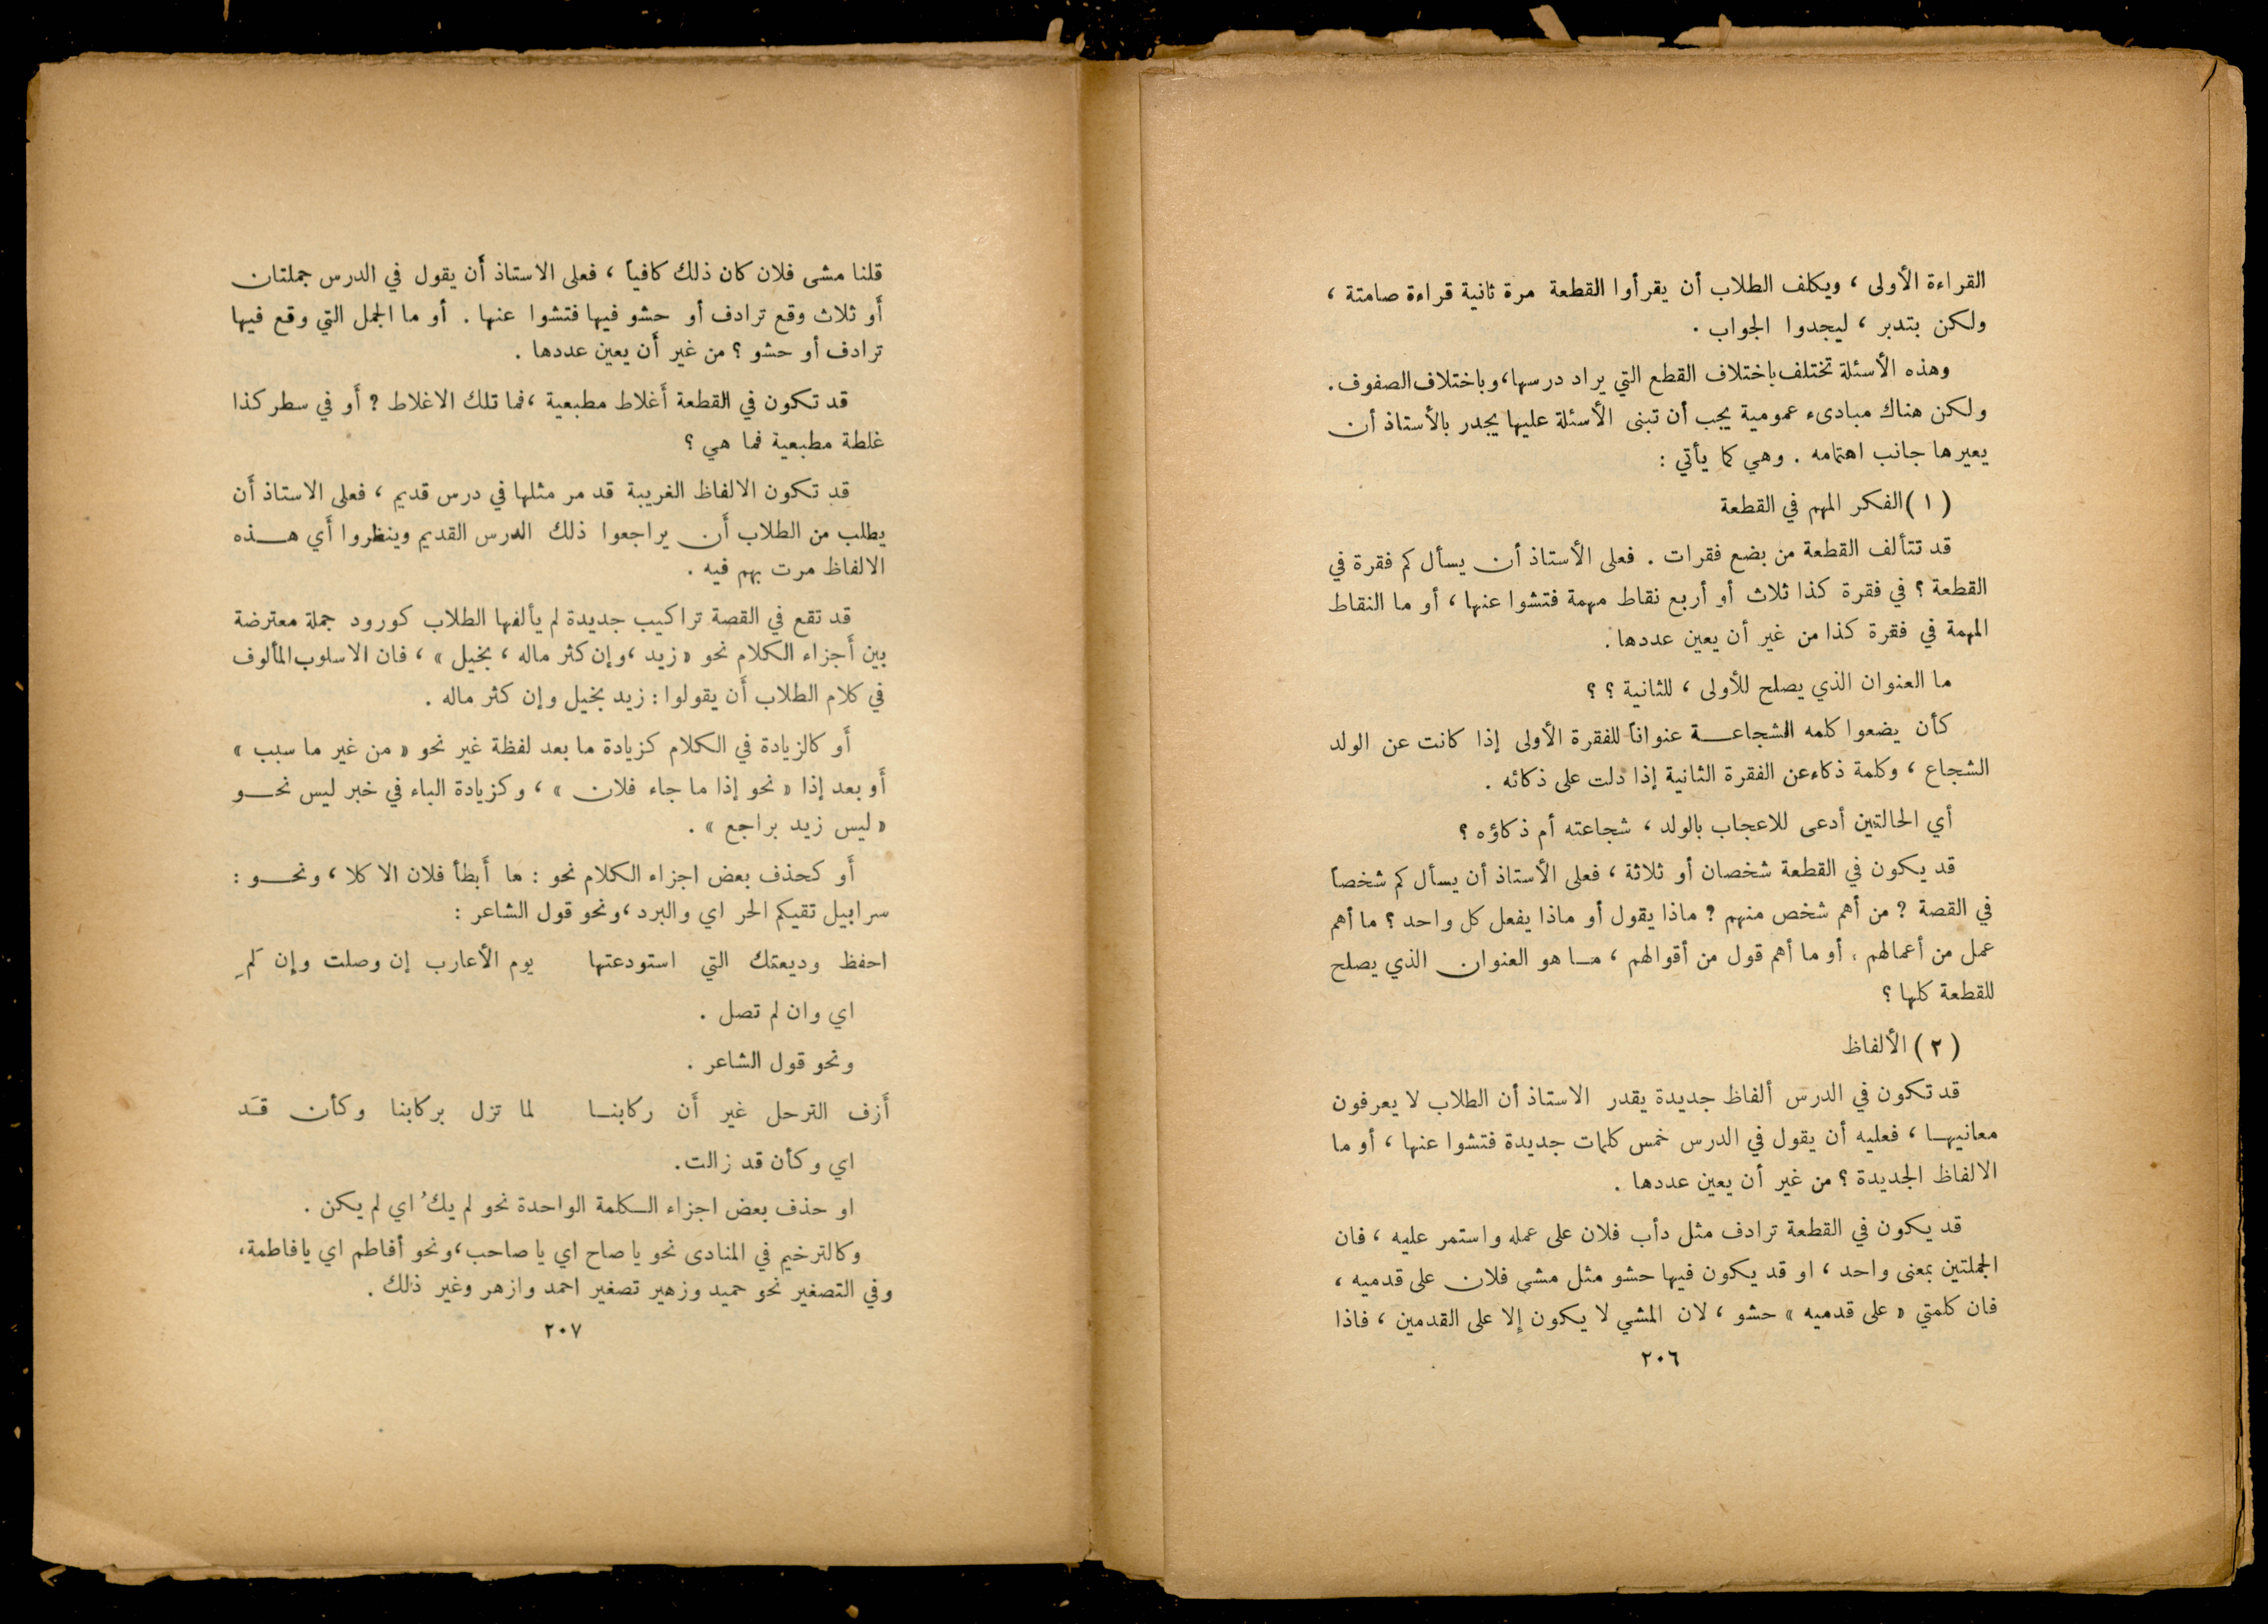 القراءة الأولى ، ويكلف الطلاب أن يقرأوا القطعة مرة ثانية قراءة صامتة ،
ولكن بتدبر ، ليجدوا الجواب .
وهذه الأسئلة تختلف باختلاف القطع التي يراد درسها ، وباختلاف الصفوف .
ولكن هناك مبادىء عمومية يجب أن تبنى الأسئلة عليها يجدر بالأستاذ أن
يعيرها جانب اهتمامه . وهي كما يأتي :
( ١ ) الفكر المهم في القطعة
قد تتألف القطعة من بضع فقرات . فعلى الأستاذ أن يسأل كم فقرة في
القطعة ؟ في فقرة كذا ثلاث أو أربع نقاط مهمة فتشوا عنها ، أو ما النقاط
المهمة في فقرة كذا من غير أن يعين عددها .
ما العنوان الذي يصلح للأولى ، للثانية ؟ ؟
كأن يضعوا كلمه الشجاعـــة عنواناً للفقرة الأولى إذا كانت عن الولد
الشجاع ، وكلمة ذكاء عن الفقرة الثانية إذا دلت على ذكائه .
أي الحالتين أدعى للاعجاب بالولد ، شجاعته أم ذكاؤه ؟
قد يكون في القطعة شخصان أو ثلاثة ، فعلى الأستاذ أن يسأل كم شخصاً
في القصة ? من أهم شخص منهم ? ماذا يقول أو ماذا يفعل كل واحد ؟ ما أهم
عمل من أعمالهم . أو ما أهم قول من أقوالهم ، مـا هو العنوان الذي يصلح
للقطعة كلها ؟
( ٢ ) الألفاظ
قد تكون في الدرس ألفاظ جديدة يقدر الاستاذ أن الطلاب لا يعرفون
معانيهـا ، فعليه أن يقول في الدرس خمس كلمات جديدة فتشوا عنها ، أو ما
الالفاظ الجديدة ؟ من غير أن يعين عددها .
قد يكون في القطعة ترادف مثل دأب فلان على عمله واستمر عليه ، فان
الجملتين بمعنى واحد ، او قد يكون فيها حشو مثل مشى فلان على قدميه ،
فان كلمتي « على قدميه » حشو ، لان المشي لا يكون إلا على القدمين ، فاذا
٢٠٦
قلنا مشى فلان كان ذلك كافياً ، فعلى الاستاذ أن يقول في الدرس جملتان
أو ثلاث وقع ترادف أو حشو فيها فتشوا عنها . أو ما الجمل التي وقع فيها
ترادف أو حشو ؟ من غير أن يعين عددها .
قد تكون في القطعة أغلاط مطبعية ، فما تلك الاغلاط ? أو في سطر كذا
غلطة مطبعية فما هي ؟
قد تكون الالفاظ الغريبة قد مر مثلها في درس قديم ، فعلى الاستاذ أن
يطلب من الطلاب أن يراجعوا ذلك الدرس القديم وينظروا أي هـــذه
الالفاظ مرت بهم فيه .
قد تقع في القصة تراكيب جديدة لم يألفها الطلاب كورود جملة معترضة
بين أجزاء الكلام نحو « زيد ، وإن كثر ماله ، بخيل » ، فان الاسلوب المألوف
في كلام الطلاب أن يقولوا : زيد بخيل وإن كثر ماله .
أو كالزيادة في الكلام كزيادة ما بعد لفظة غير نحو « من غير ما سبب »
أو بعد إذا « نحو إذا ما جاء فلان » ، وكزيادة الباء في خبر ليس نحـــو
« ليس زيد براجع » .
أو كحذف بعض اجزاء الكلام نحو : ما أبطأ فلان الا كلا ، ونحـــو :
سرابيل تقيكم الحر اي والبرد ، ونحو قول الشاعر :
احفظ وديعتك التي استودعتها يوم الأعارب إن وصلت وإن لَمِ
اي وان لم تصل .
ونحو قول الشاعر .
أزف الترحل غير أن ركابنـا لما تزل بركابنا وكأن قَـد
اي وكأن قد زالت .
او حذف بعض اجزاء الـكلمة الواحدة نحو لم يكُ اي لم يكن .
وكالترخيم في المنادى نحو يا صاح اي يا صاحب ، ونحو أفاطم اي يا فاطمة ،
وفي التصغير نحو حميد وزهير تصغير احمد وازهر وغير ذلك .
٢٠٧